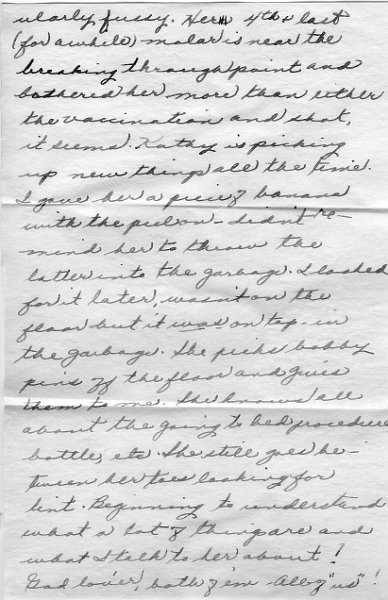 ularly fussy. Her 4th & last
(for awhile) molar is near the
breaking through point and
bothered her more than either
the vaccination and shot,
it seems. Kathy is picking
up new things all the time.
I gave her a piece of banana
with the peel on - didn't re-
mind her to throw the
latter into the garbage. I looked
for it later, wasn't on the
floor but it was on top - in
the garbage. She picks bobby
pins off the floor and gives
them to me. She knows all
about the going to bed procedure
bottle, etc. She still goes be-
tween her toes looking for
lint. Beginning to understand
what a lot of things are and
what I talk to her about!
God love'er, both of 'em - All of "us"!